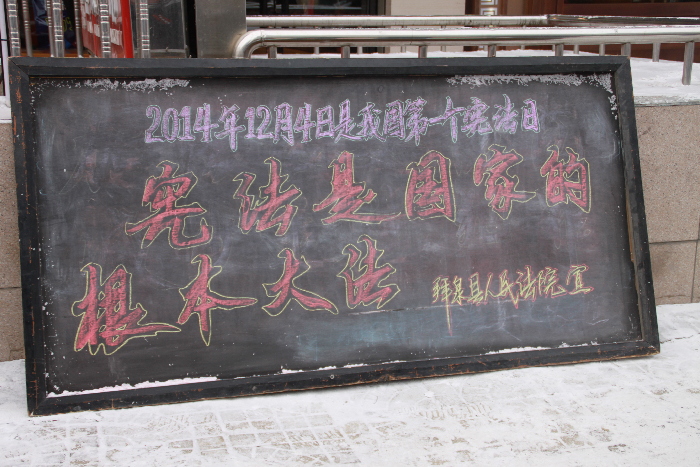 2014年12月4日是我国第一个宪法日
宪法是国家的
根本大法 拜泉县人民法院宣